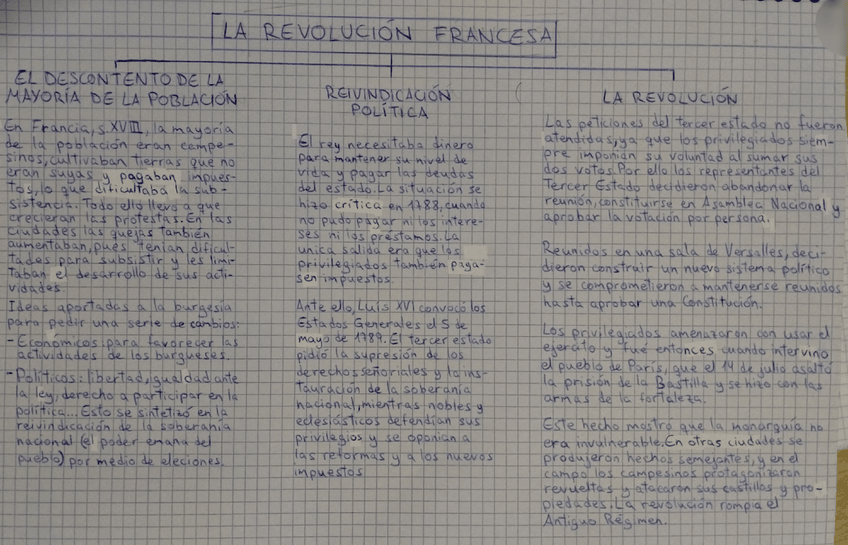 LA REVOLUCIÓN FRANCESA
EL DESCONTENTO DE LA
MAYORÍA DE LA POBLACIÓN
En Francia, s. XVIII, la mayoría
de la población eran campe-
sinos, cultivaban tierras que no
eran suyas y pagaban impues-
tos, lo que dificultaba la sub-
sistencia. Todo ello llevo a que
crecieran las protestas. En las
ciudades las quejas también
aumentaban, pues tenían dificul-
tades para subsistir y les limi-
taban el desarrollo de sus acti-
vidades.
Ideas aportadas a la burgesía
para pedir una serie de cambios:
- Económicos: para favorecer las
actividades de los burgueses.
- Políticos: libertad, igualdad ante
la ley, derecho a participar en la
política... Esto se sintetizó en la
reivindicación de la soberanía
nacional (el poder emana del
pueblo) por medio de eleciones.
REIVINDICACIÓN
POLÍTICA
El rey necesitaba dinero
para mantener su nivel de
vida y pagar las deudas
del estado. La situación se
hizo crítica en 1788, cuando
no pudo pagar ni los intere-
ses ni los préstamos. La
unica salida era que los
privilegiados también paga-
sen impuestos.
Ante ello, Luis XVI convocó los
Estados Generales el 5 de
mayo de 1789. El tercer estado
pidió la supresión de los
derechos señoriales y la ins-
tauración de la soberanía
nacional, mientras nobles y
eclesiásticos defendían sus
privilegios y se oponían a
las reformas y a los nuevos
impuestos
LA REVOLUCIÓN
Las peticiones del tercer estado no fueron
atendidas, ya que los privilegiados siem-
pre imponían su voluntad al sumar sus
dos votos. Por ello los representantes del
Tercer Estado decidieron abandonar la
reunión, constituirse en Asamblea Nacional y
aprobar la votación por persona.
Reunidos en una sala de Versalles, deci-
dieron construir un nuevo sistema político
y se comprometieron a mantenerse reunidos
hasta aprobar una Constitución.
Los privilegiados amenazaron con usar el
ejercito y fué entonces cuando intervino
el pueblo de París, que el 14 de julio asaltó
la prisión de la Bastilla y se hizo con las
armas de la fortaleza.
Este hecho mostró que la monarquía no
era invulnerable. En otras ciudades se
produjeron hechos semejantes, y en el
campo los campesinos protagonizaron
revueltas y atacaron sus castillos y pro-
piedades. La revolución rompía el
Antiguo Régimen.